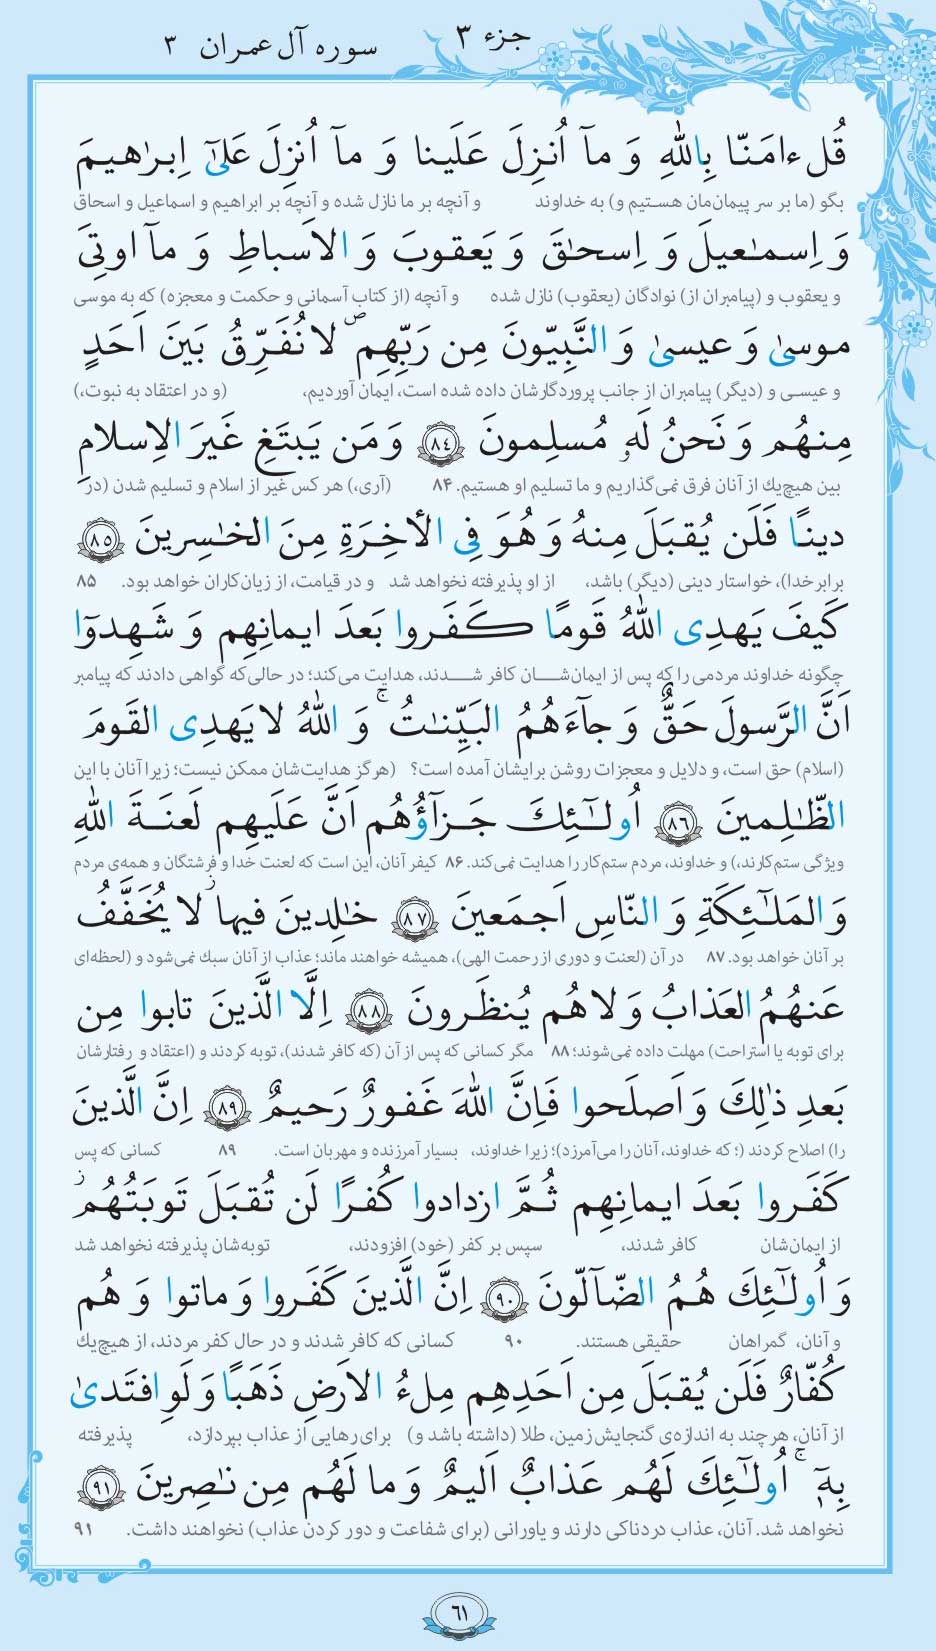 جزء ۳
سوره آل عمران ۳
قُل ءامَنّا بِاللّٰهِ وَ مآ اُنزِلَ عَلَينا وَ مآ اُنزِلَ عَلىٰٓ اِبرٰهيمَ
بگو (ما بر سر پیمان‌مان هستیم و) به خداوند و آنچه بر ما نازل شده و آنچه بر ابراهیم و اسماعیل و اسحاق
وَ اِسمٰعيلَ وَ اِسحٰقَ وَ يَعقوبَ وَ الاَسباطِ وَ مآ اوتِىَ
و یعقوب و (پیامبران از) نوادگان (یعقوب) نازل شده و آنچه (از کتاب آسمانی و حکمت و معجزه) که به موسی
موسىٰ وَ عيسىٰ وَ النَّبِيّونَ مِن رَبِّهِم ۖ لا نُفَرِّقُ بَينَ اَحَدٍ
و عیسی و (دیگر) پیامبران از جانب پروردگارشان داده شده است، ایمان آوردیم، (و در اعتقاد به نبوت،)
مِنهُم وَ نَحنُ لَهٗ مُسلِمونَ ﴿٨٤﴾ وَ مَن يَبتَغِ غَيرَ الاِسلامِ
بین هیچ‌یك از آنان فرق نمی‌گذاریم و ما تسلیم او هستیم. ۸۴ (آری،) هر کس غیر از اسلام و تسلیم شدن (در
دينًا فَلَن يُقبَلَ مِنهُ وَ هُوَ فِى الأخِرَةِ مِنَ الخٰسِرينَ ﴿٨٥﴾
برابر خدا)، خواستار دینی (دیگر) باشد، از او پذیرفته نخواهد شد و در قیامت، از زیان‌کاران خواهد بود. ۸۵
كَيفَ يَهدِى اللّٰهُ قَومًا كَفَروا بَعدَ ايمانِهِم وَ شَهِدوٓا
چگونه خداوند مردمی را که پس از ایمان‌شان کافر شدند، هدایت می‌کند؛ در حالی‌که گواهی دادند که پیامبر
اَنَّ الرَّسولَ حَقٌّ وَ جآءَهُمُ البَيِّنٰتُ ۚ وَ اللّٰهُ لا يَهدِى القَومَ
(اسلام) حق است، و دلایل و معجزات روشن برایشان آمده است؟ (هرگز هدایت‌شان ممکن نیست؛ زیرا آنان با این
الظّٰلِمينَ ﴿٨٦﴾ اُولٰٓئِكَ جَزآؤُهُم اَنَّ عَلَيهِم لَعنَةَ اللّٰهِ
ویژگی ستم‌کارند،) و خداوند، مردم ستم‌کار را هدایت نمی‌کند. ۸۶ کیفر آنان، این است که لعنت خدا و فرشتگان و همه‌ی مردم
وَ المَلٰٓئِكَةِ وَ النّاسِ اَجمَعينَ ﴿٨٧﴾ خٰلِدينَ فيها ۖ لا يُخَفَّفُ
بر آنان خواهد بود. ۸۷ در آن (لعنت و دوری از رحمت الهی)، همیشه خواهند ماند؛ عذاب از آنان سبك نمی‌شود و (لحظه‌ای
عَنهُمُ العَذابُ وَ لا هُم يُنظَرونَ ﴿٨٨﴾ اِلَّا الَّذينَ تابوا مِن
برای توبه یا استراحت) مهلت داده نمی‌شوند؛ ۸۸ مگر کسانی که پس از آن (که کافر شدند)، توبه کردند و (اعتقاد و رفتارشان
بَعدِ ذٰلِكَ وَ اَصلَحوا فَاِنَّ اللّٰهَ غَفورٌ رَحيمٌ ﴿٨٩﴾ اِنَّ الَّذينَ
را) اصلاح کردند (؛ که خداوند، آنان را می‌آمرزد)؛ زیرا خداوند، بسیار آمرزنده و مهربان است. ۸۹ کسانی که پس
كَفَروا بَعدَ ايمانِهِم ثُمَّ ازدادوا كُفرًا لَن تُقبَلَ تَوبَتُهُم ز
از ایمان‌شان کافر شدند، سپس بر کفر (خود) افزودند، توبه‌شان پذیرفته نخواهد شد
وَ اُولٰٓئِكَ هُمُ الضّآلّونَ ﴿٩٠﴾ اِنَّ الَّذينَ كَفَروا وَ ماتوا وَ هُم
و آنان، گمراهان حقیقی هستند. ۹۰ کسانی که کافر شدند و در حال کفر مردند، از هیچ‌یك
كُفّارٌ فَلَن يُقبَلَ مِن اَحَدِهِم مِلءُ الاَرضِ ذَهَبًا وَ لَوِ افتَدىٰ
از آنان، هر چند به اندازه‌ی گنجایش زمین، طلا (داشته باشد و) برای رهایی از عذاب بپردازد، پذیرفته
بِهٖٓ ۗ اُولٰٓئِكَ لَهُم عَذابٌ اَليمٌ وَ ما لَهُم مِن نٰصِرينَ ﴿٩١﴾
نخواهد شد. آنان، عذاب دردناکی دارند و یاورانی (برای شفاعت و دور کردن عذاب) نخواهند داشت. ۹۱
۶۱